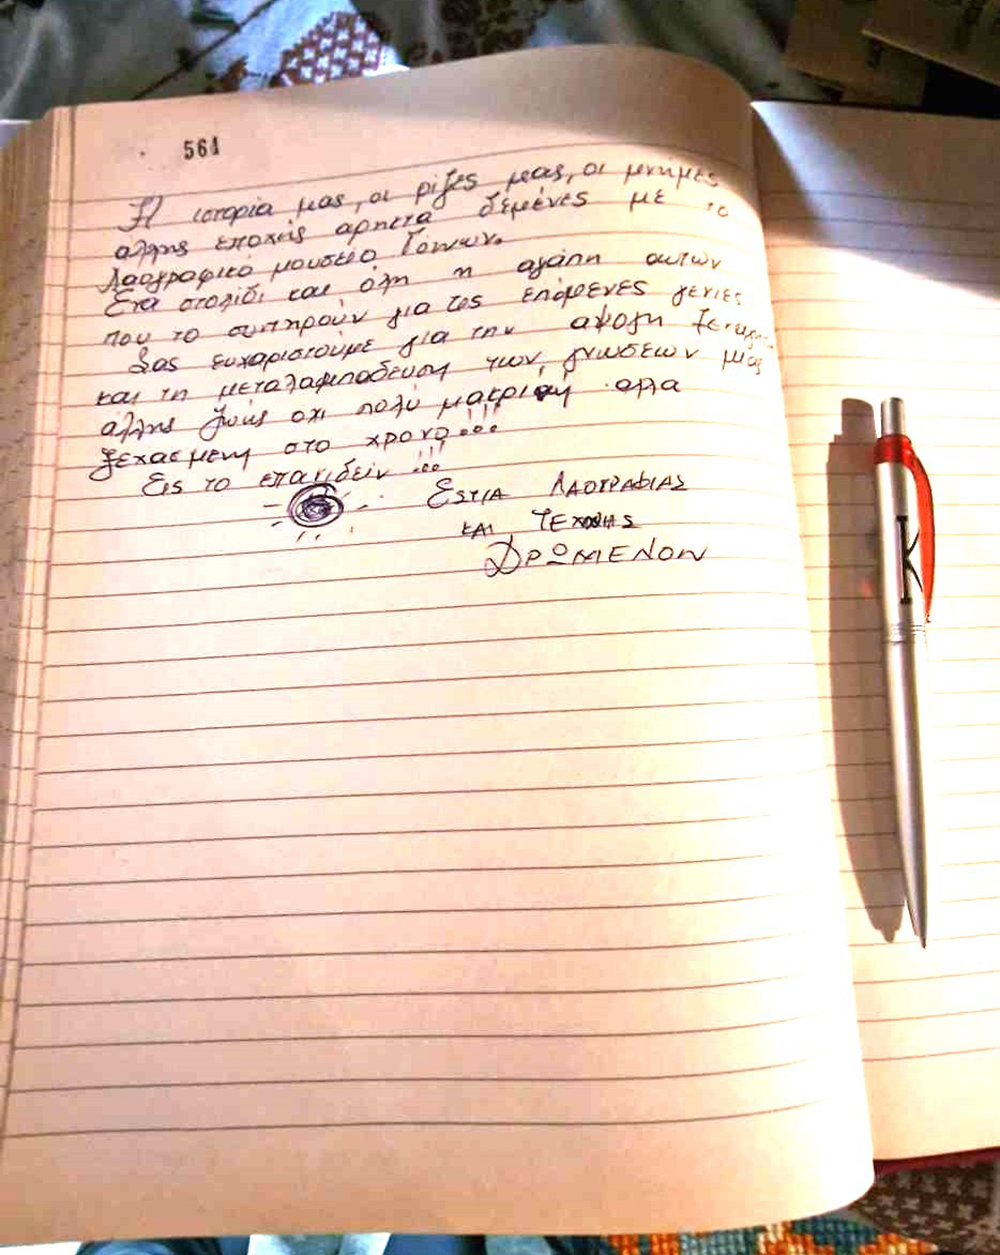 561
Η ιστορία μας, οι ρίζες μας, οι μνήμες
άλλης εποχής άρηκτα δεμένες με το
Λαογραφικό μουσείο Γόννων.
Ένα στολίδι και όλη η αγάπη αυτών
που το συντηρούν για τις επόμενες γενιές
Σας ευχαριστούμε για την άψογη
και τη μεταλαμπάδευση των γνώσεων μιας
άλλης ζωής όχι πολύ μακρινή αλλά
ξεχασμένη στο χρόνο...!!!
Εις το επανιδείν...!!!
ΕΣΤΙΑ ΛΑΟΓΡΑΦΙΑΣ
ΚΑΙ ΤΕΧΝΗΣ
ΔΡΩΜΕΝΟΝ
K